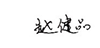 赵健品